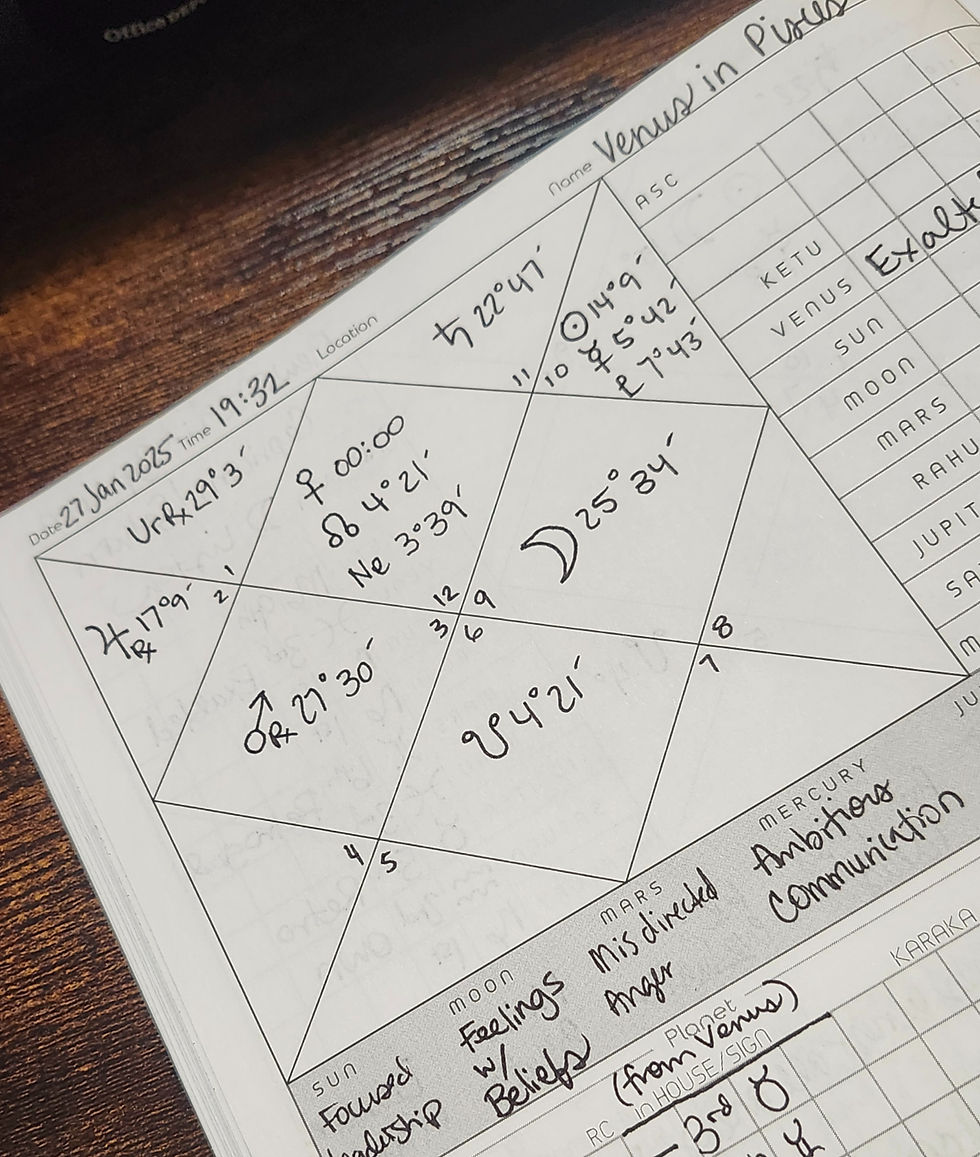 Name Venus in Pisces
Date 27 Jan 2025 Time 19:32 Location
♄ 22°47′
☉ 14°9′
☿ 5°42′
♇ 7°43′
11
10
Ur Rx 29°3′
♀ 00:00
☊ 4°21′
Ne 3°39′
☽ 25°34′
1
2
12
9
3
6
8
7
4
5
♃ Rx 17°9′
♂ Rx 27°30′
☋ 4°21′
ASC
KETU
VENUS
SUN
MOON
MARS
RAHU
SUN
Focused
MOON
Feelings
w/
Beliefs
MARS
Misdirected
Anger
MERCURY
Ambitious
Communication
KARAKA
Planet
(from Venus)
in HOUSE/SIGN
RC
3rd ♉